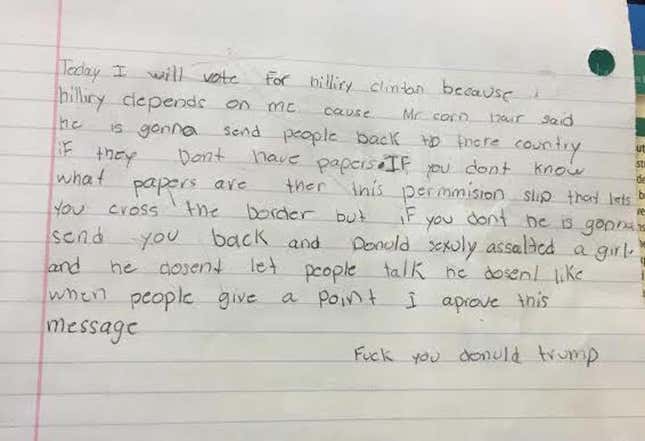 Today I will vote For hilliry clinton because
hilliry depends on me cause Mr corn hair said
he is gonna send people back to there country
iF they Dont have papers. IF you dont know
what papers are ther this permmision slip that lets
you cross the border but iF you dont he is gonna
send you back and Donuld sexuly assalted a girl
and he dosent let people talk he dosent like
when people give a point I aprove this
message
Fuck you donuld trump